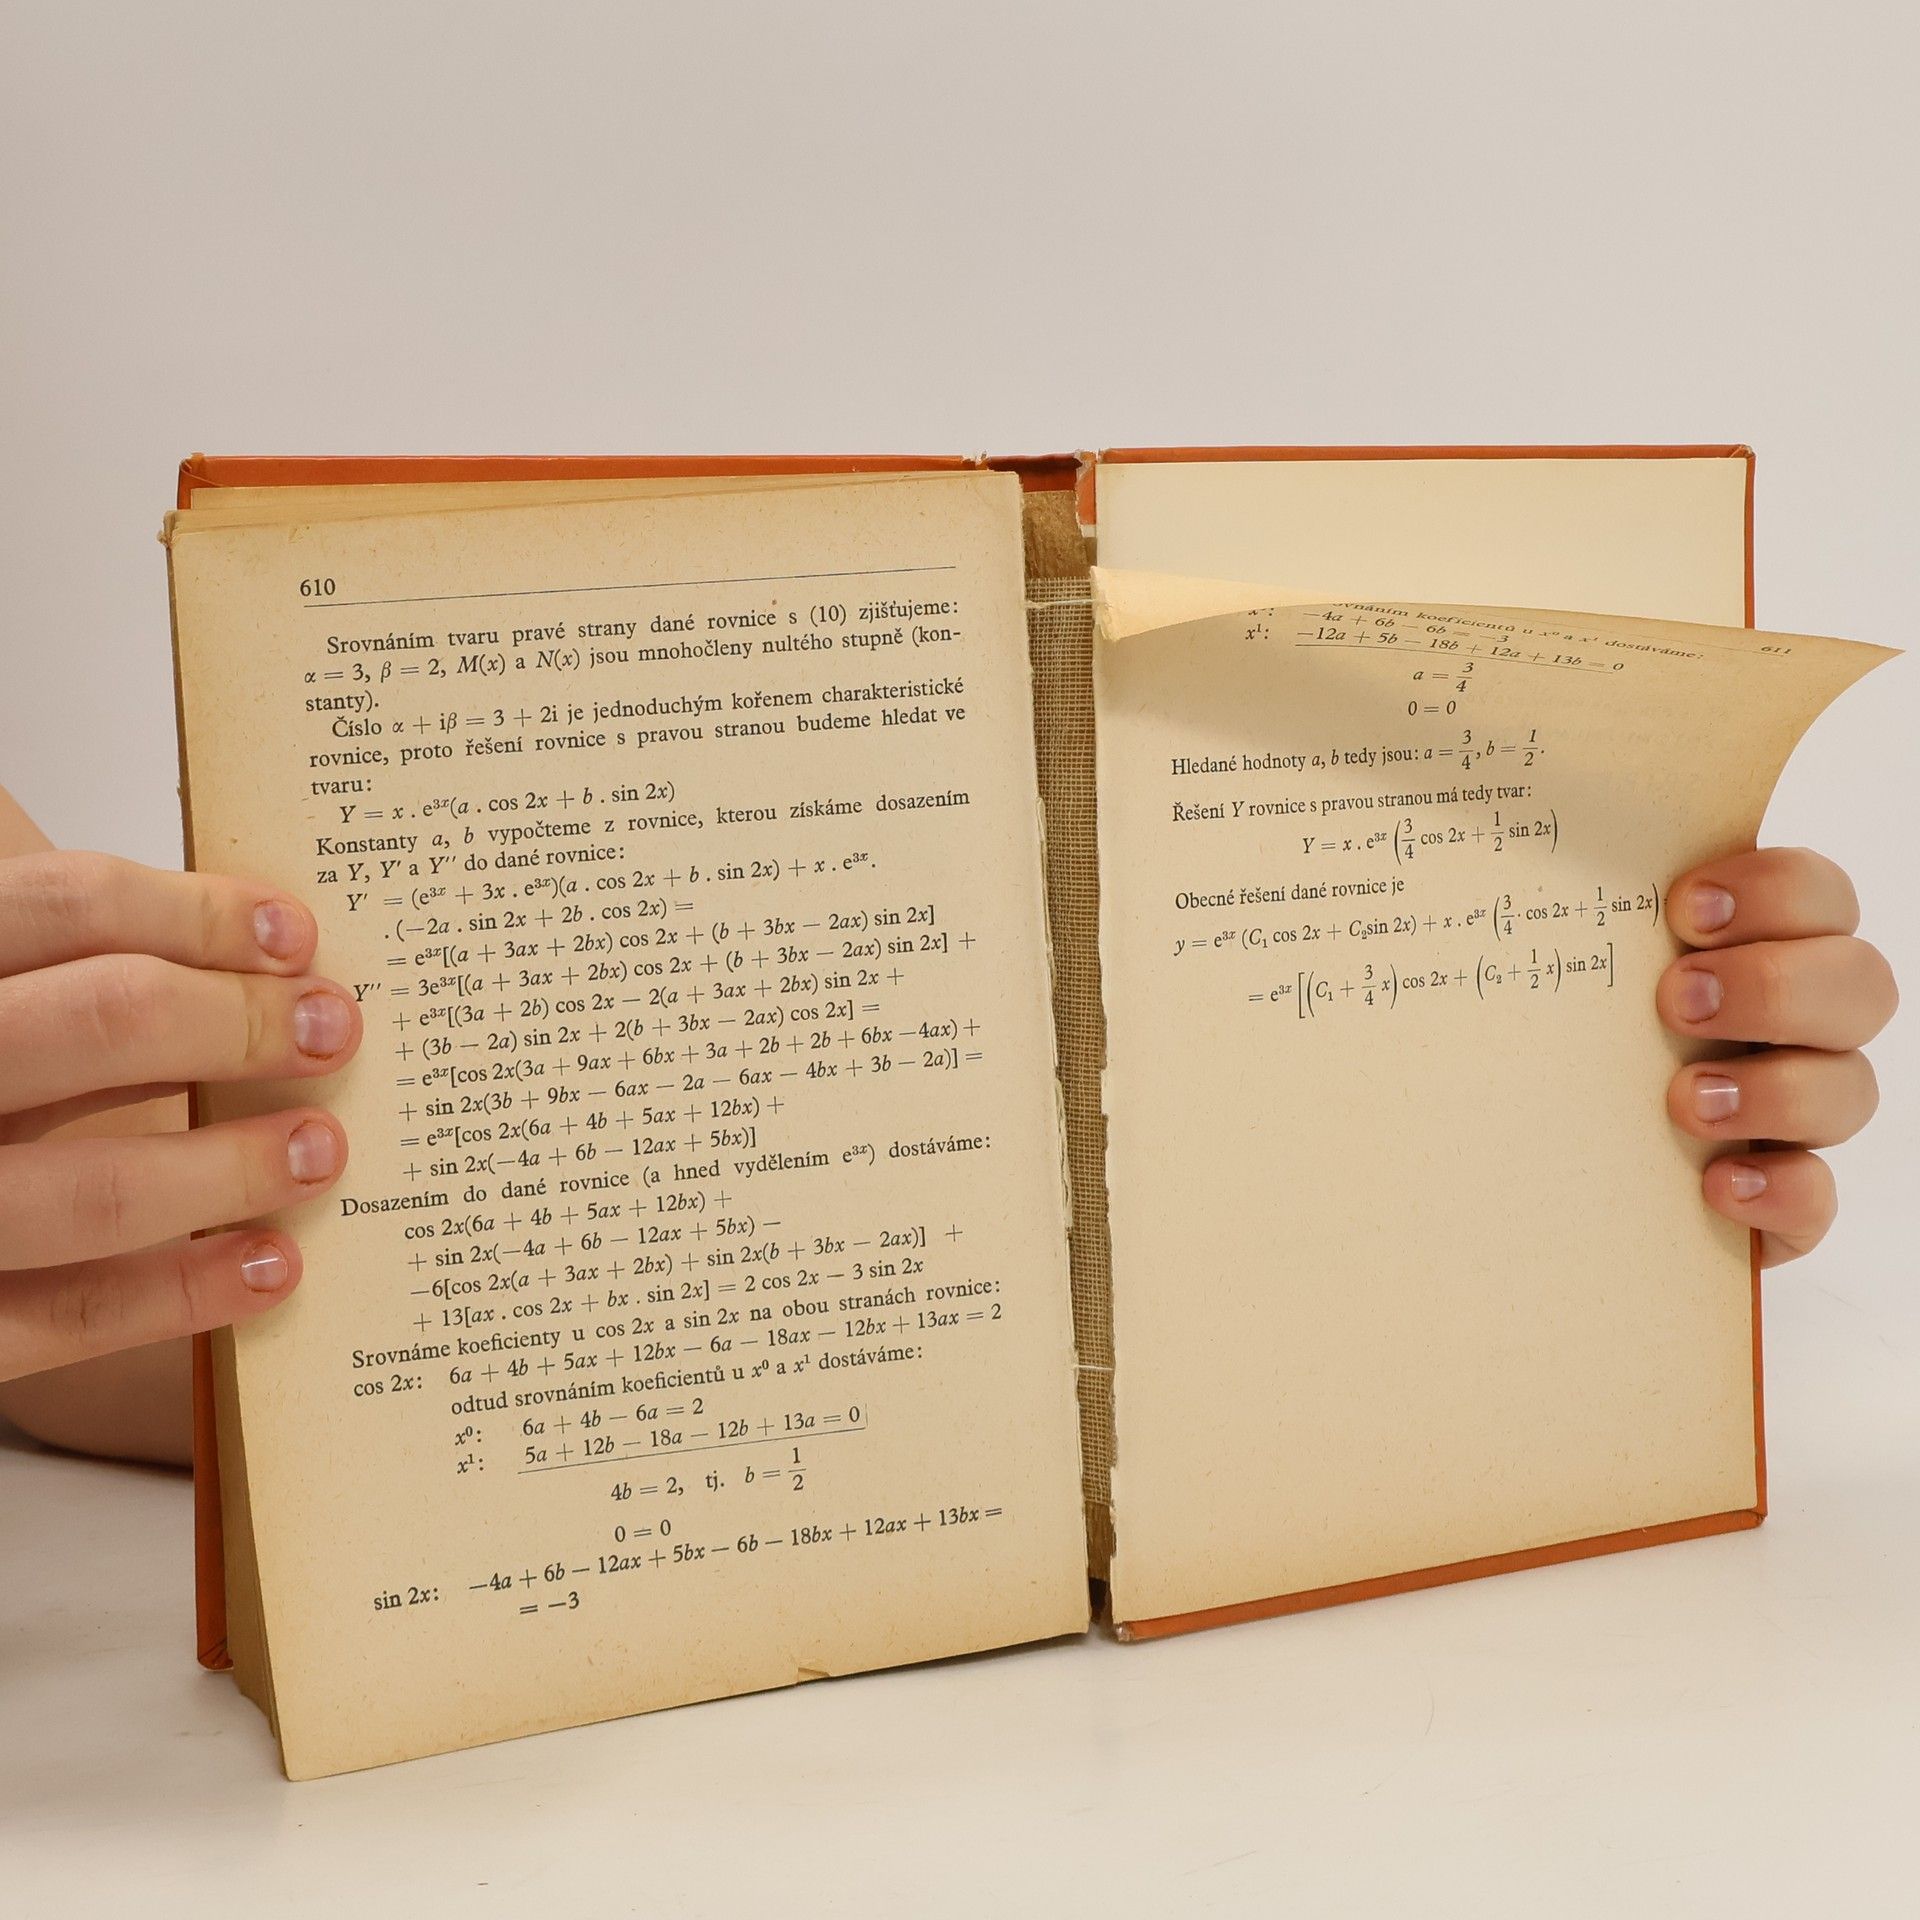 610
Srovnáním tvaru pravé strany dané rovnice s (10) zjišťujeme:
α = 3, β = 2, M(x) a N(x) jsou mnohočleny nultého stupně (kon-
stanty).
Číslo α + iβ = 3 + 2i je jednoduchým kořenem charakteristické
rovnice, proto řešení rovnice s pravou stranou budeme hledat ve
tvaru:
Y = x . e³ˣ(a . cos 2x + b . sin 2x)
Konstanty a, b vypočteme z rovnice, kterou získáme dosazením
za Y, Y′ a Y′′ do dané rovnice:
Y′ = (e³ˣ + 3x . e³ˣ)(a . cos 2x + b . sin 2x) + x . e³ˣ.
. (−2a . sin 2x + 2b . cos 2x) =
= e³ˣ[(a + 3ax + 2bx) cos 2x + (b + 3bx − 2ax) sin 2x]
Y′′ = 3e³ˣ[(a + 3ax + 2bx) cos 2x + (b + 3bx − 2ax) sin 2x] +
+ e³ˣ[(3a + 2b) cos 2x − 2(a + 3ax + 2bx) sin 2x +
+ (3b − 2a) sin 2x + 2(b + 3bx − 2ax) cos 2x] =
= e³ˣ[cos 2x(3a + 9ax + 6bx + 3a + 2b + 2b + 6bx −4ax) +
+ sin 2x(3b + 9bx − 6ax − 2a − 6ax − 4bx + 3b − 2a)] =
= e³ˣ[cos 2x(6a + 4b + 5ax + 12bx) +
+ sin 2x(−4a + 6b − 12ax + 5bx)]
Dosazením do dané rovnice (a hned vydělením e³ˣ) dostáváme:
cos 2x(6a + 4b + 5ax + 12bx) +
+ sin 2x(−4a + 6b − 12ax + 5bx) −
−6[cos 2x(a + 3ax + 2bx) + sin 2x(b + 3bx − 2ax)] +
+ 13[ax . cos 2x + bx . sin 2x] = 2 cos 2x − 3 sin 2x
Srovnáme koeficienty u cos 2x a sin 2x na obou stranách rovnice:
cos 2x: 6a + 4b + 5ax + 12bx − 6a − 18ax − 12bx + 13ax = 2
odtud srovnáním koeficientů u x⁰ a x¹ dostáváme:
x⁰: 6a + 4b − 6a = 2
x¹: 5a + 12b − 18a − 12b + 13a = 0
4b = 2, tj. b = 1/2
0 = 0
sin 2x: −4a + 6b − 12ax + 5bx − 6b − 18bx + 12ax + 13bx =
= −3
611
srovnáním koeficientů u x⁰ a x¹ dostáváme:
−4a + 6b − 6b = −3
x¹: −12a + 5b − 18b + 12a + 13b = 0
a = 3/4
0 = 0
Hledané hodnoty a, b tedy jsou: a = 3/4, b = 1/2.
Řešení Y rovnice s pravou stranou má tedy tvar:
Y = x . e³ˣ (3/4 cos 2x + 1/2 sin 2x)
Obecné řešení dané rovnice je
y = e³ˣ (C₁ cos 2x + C₂sin 2x) + x . e³ˣ (3/4 . cos 2x + 1/2 sin 2x)
= e³ˣ [(C₁ + 3/4 x) cos 2x + (C₂ + 1/2 x) sin 2x]